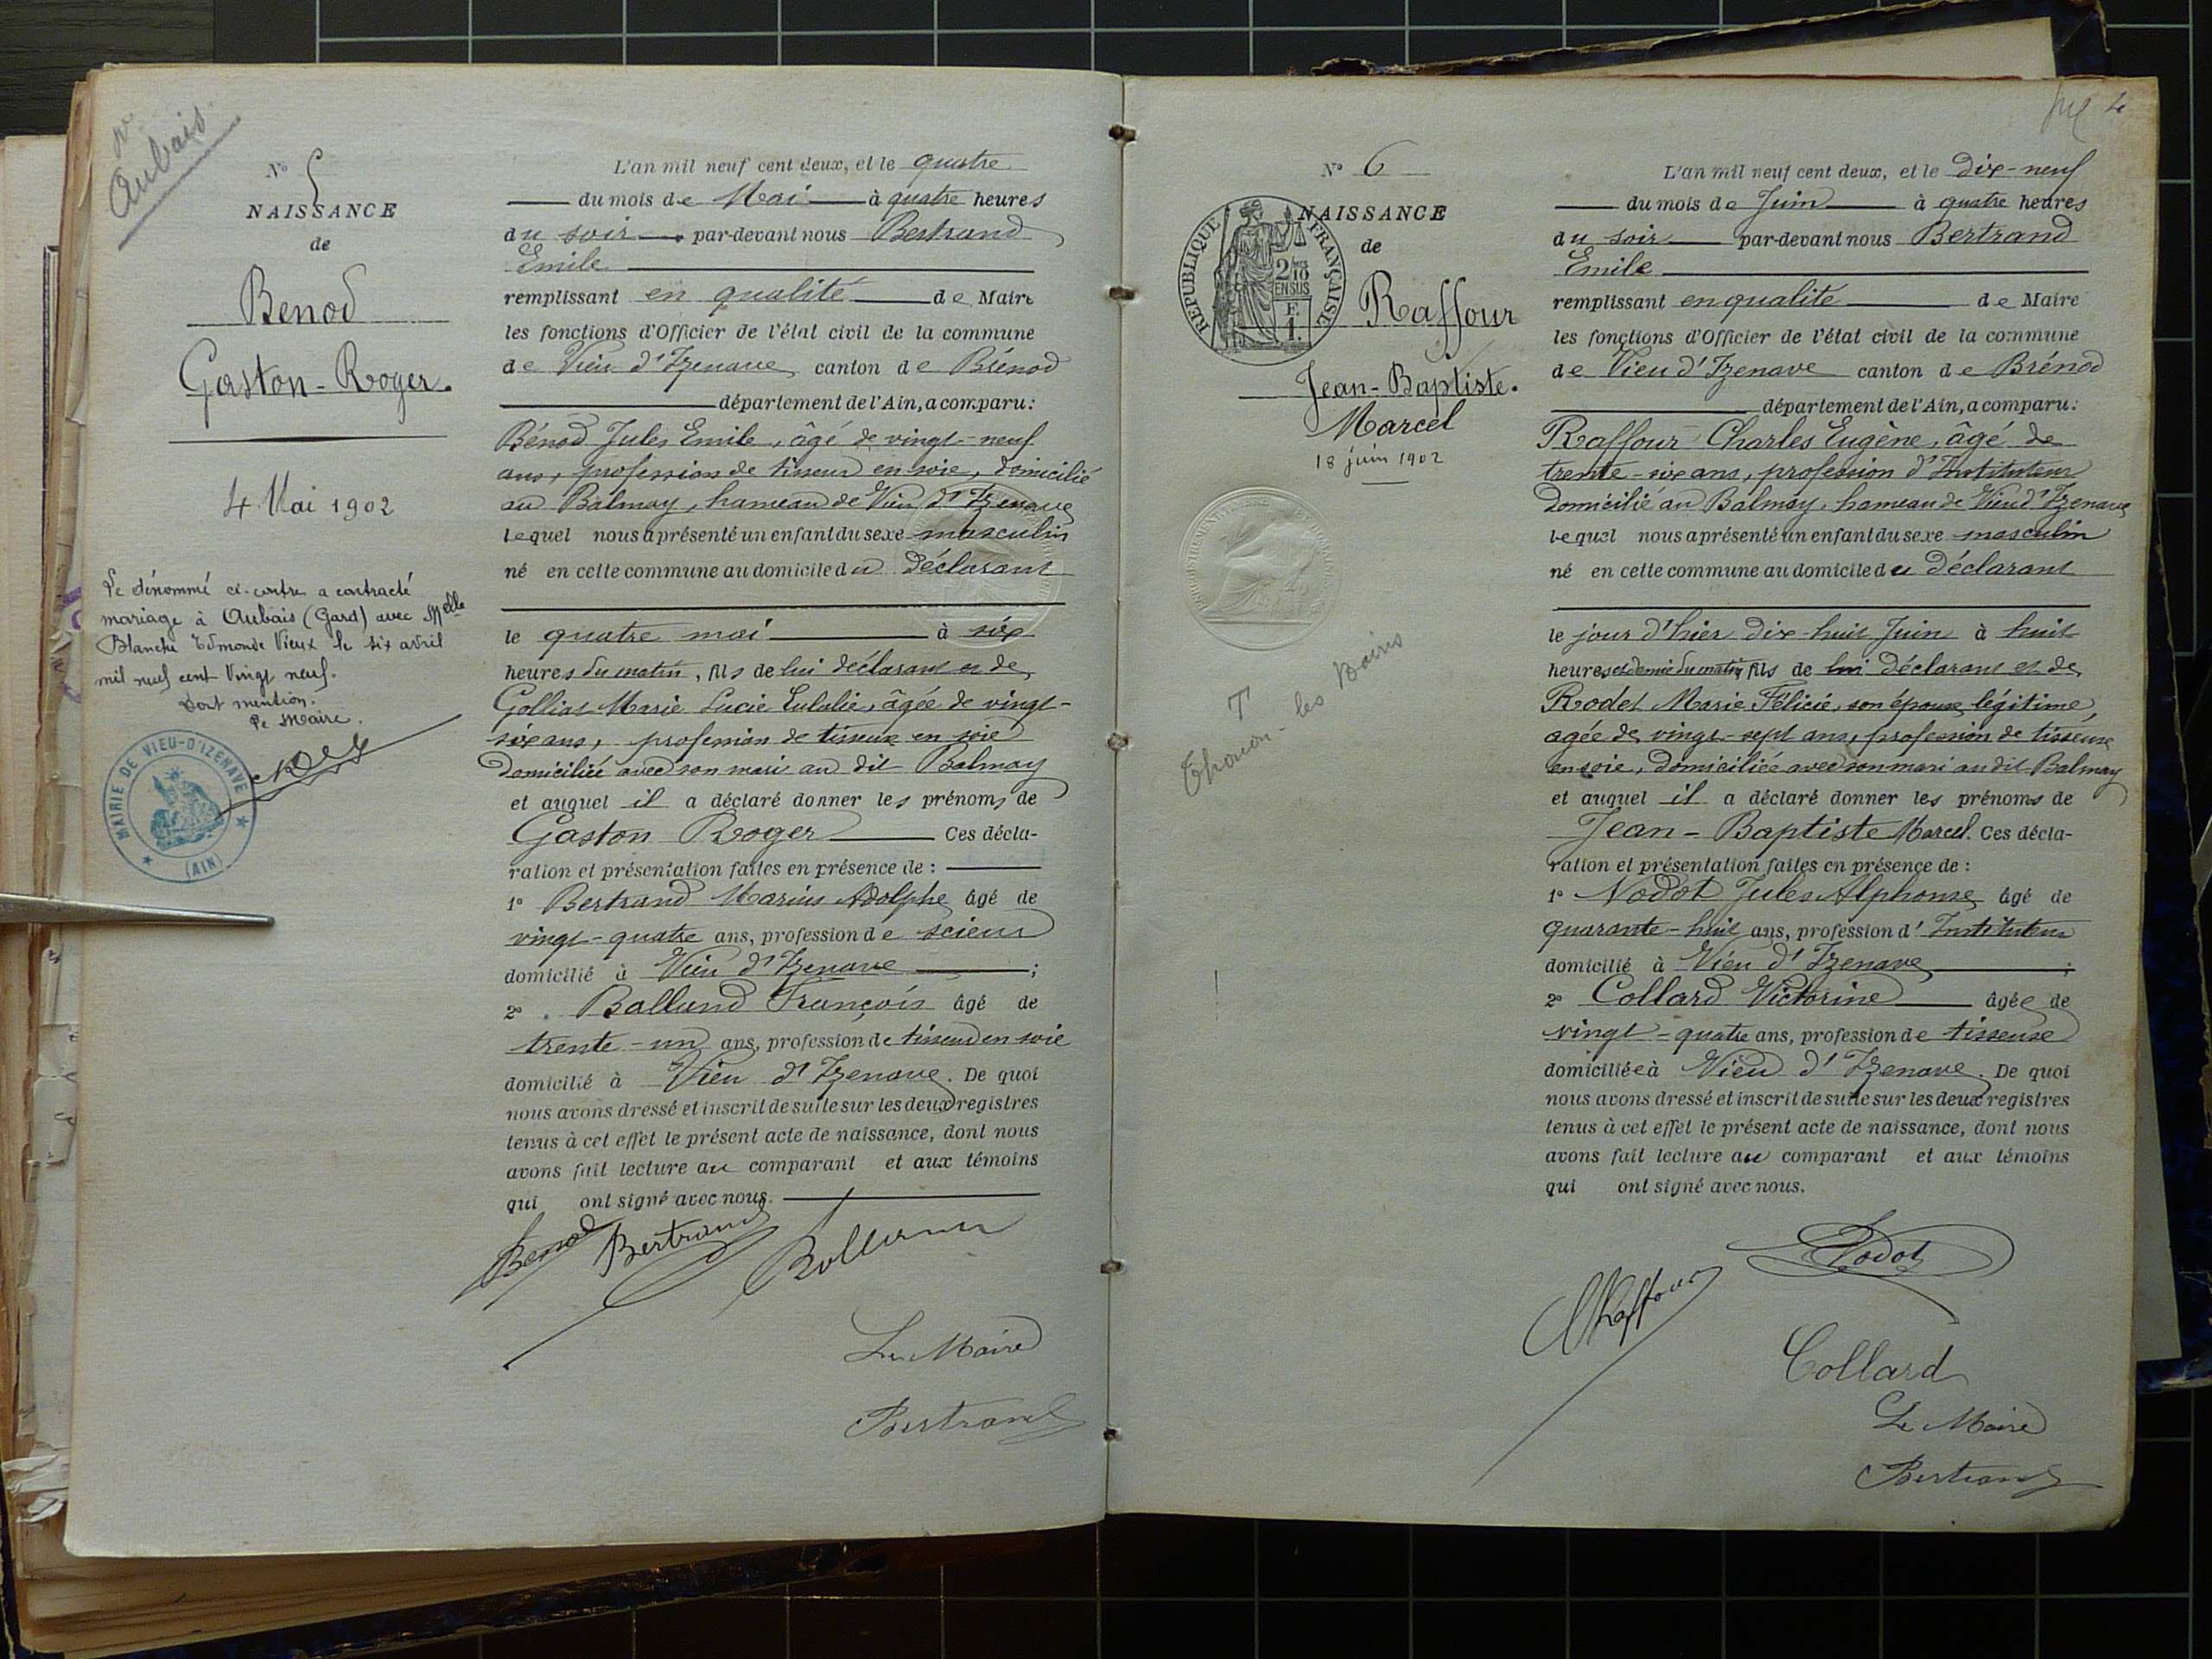 Aubais
N° 5
NAISSANCE
de
Benod
Gaston-Roger.
4 Mai 1902
Le dénommé ci-contre a contracté
mariage à Aubais (Gard) avec Melle
Blanche Edmonde Vieux le six avril
mil neuf cent vingt neuf.
Dont mention.
Le Maire.
MAIRIE DE VIEU-D'IZENAVE
(AIN)
L'an mil neuf cent deux, et le quatre
du mois de Mai à quatre heures
du soir par-devant nous Bertrand
Emile
remplissant en qualité de Maire
les fonctions d'Officier de l'état civil de la commune
de Vieu d'Izenave canton de Brénod
département de l'Ain, a comparu:
Bénod Jules Emile, âgé de vingt-neuf
ans, profession de tisseur en soie, domicilié
au Balmay, hameau de Vieu d'Izenave
lequel nous a présenté un enfant du sexe masculin
né en cette commune au domicile du déclarant
le quatre mai à six
heures du matin, fils de lui déclarant et de
Golliat Marie Lucie Eulalie, âgée de vingt-
six ans, profession de tisseuse en soie
domiciliée avec son mari au dit Balmay
et auquel il a déclaré donner les prénoms de
Gaston Roger Ces décla-
ration et présentation faites en présence de :
1° Bertrand Marius Adolphe âgé de
vingt-quatre ans, profession de scieur
domicilié à Vieu d'Izenave ;
2° Balland François âgé de
trente-un ans, profession de tisseur en soie
domicilié à Vieu d'Izenave. De quoi
nous avons dressé et inscrit de suite sur les deux registres
tenus à cet effet le présent acte de naissance, dont nous
avons fait lecture au comparant et aux témoins
qui ont signé avec nous.
Benod Bertrand Balland
Le Maire
Bertrand
4
N° 6
NAISSANCE
de
REPUBLIQUE FRANÇAISE
2/10
EN SUS
F.
1.
Raffour
Jean-Baptiste.
Marcel
18 juin 1902
T
Thonon-les Bains
L'an mil neuf cent deux, et le Dix-neuf
du mois de Juin à quatre heures
du soir par-devant nous Bertrand
Emile
remplissant en qualité de Maire
les fonctions d'Officier de l'état civil de la commune
de Vieu d'Izenave canton de Brénod
département de l'Ain, a comparu:
Raffour Charles Eugène, âgé de
trente-six ans, profession d'Instituteur
Domicilié au Balmay, hameau de Vieu d'Izenave
lequel nous a présenté un enfant du sexe masculin
né en cette commune au domicile du déclarant
le jour d'hier dix-huit Juin à huit
heures et demie du matin fils de lui déclarant et de
Rodet Marie Félicie, son épouse légitime,
agée de vingt-sept ans, profession de tisseuse
en soie, domiciliée avec son mari au dit Balmay
et auquel il a déclaré donner les prénoms de
Jean-Baptiste Marcel. Ces décla-
ration et présentation faites en présence de :
1° Nodot Jules Alphonse âgé de
quarante-huit ans, profession d'Instituteur
domicilié à Vieu d'Izenave ;
2° Collard Victorine âgée de
vingt-quatre ans, profession de tisseuse
domiciliée à Vieu d'Izenave. De quoi
nous avons dressé et inscrit de suite sur les deux registres
tenus à cet effet le présent acte de naissance, dont nous
avons fait lecture au comparant et aux témoins
qui ont signé avec nous.
Nodot
Raffour
Collard
Le Maire
Bertrand